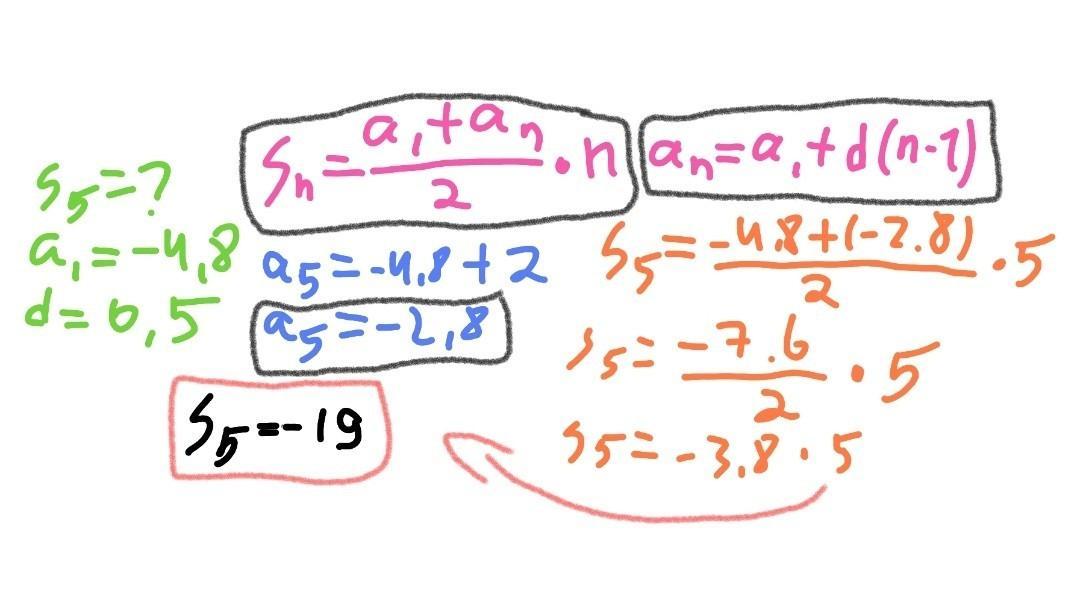 S₅=?
a₁=-4,8
d=0,5
Sₙ=(a₁+aₙ)/2·n
aₙ=a₁+d(n-1)
a₅=-4,8+2
a₅=-2,8
S₅=(-4.8+(-2.8))/2·5
S₅=(-7.6)/2·5
S₅=-3.8·5
S₅=-19